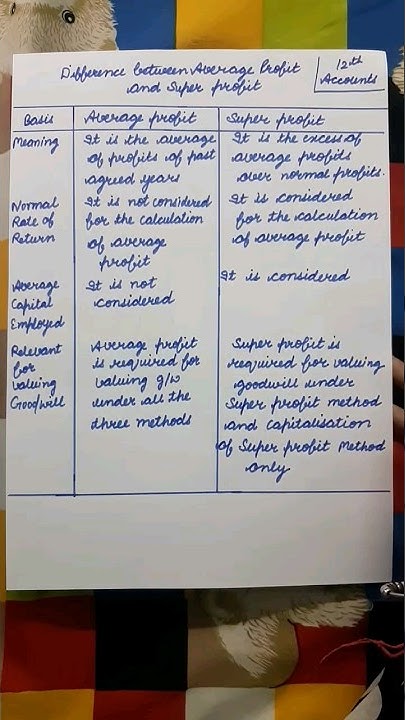 Difference between Average Profit
and Super profit
12th
Accounts
Basis
Average profit
Super profit
Meaning
It is the average
of profits of past
agreed years
It is the excess of
average profits
over normal profits.
Normal
Rate of
Return
It is not considered
for the calculation
of average
profit
It is considered
for the calculation
of average profit
Average
Capital
Employed
It is not
considered
It is considered
Relevant
for
valuing
Goodwill
Average profit
is required for
valuing g/w
under all the
three methods
Super profit is
required for valuing
goodwill under
Super profit method
and capitalisation
of Super profit Method
only